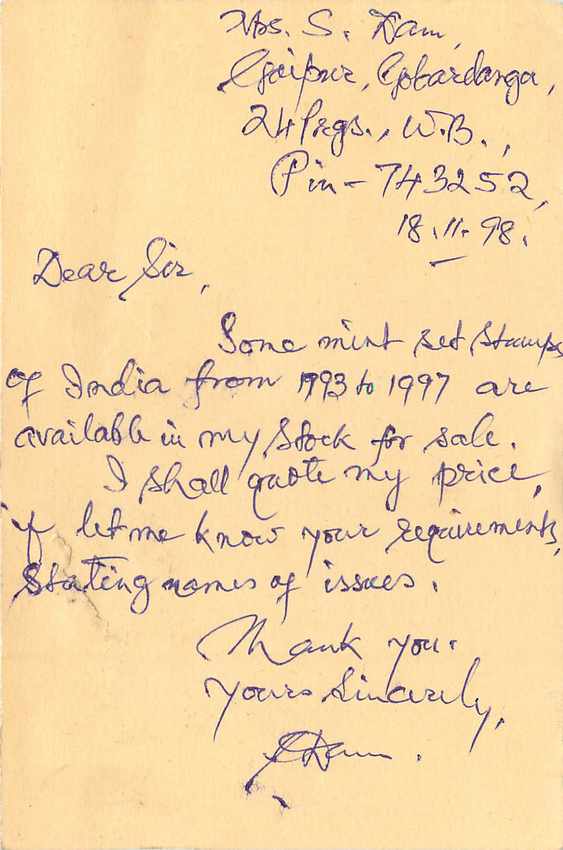 Mrs. S. Dam,
Gaipur, Gobardanga,
24 Prgs., W.B.,
Pin - 743252,
18.11.98.
Dear Sir,
Some mint set stamps
of India from 1993 to 1997 are
available in my stock for sale.
I shall quote my price,
if let me know your requirements,
stating names of issues.
Thank you.
Yours Sincerely,
SDam.